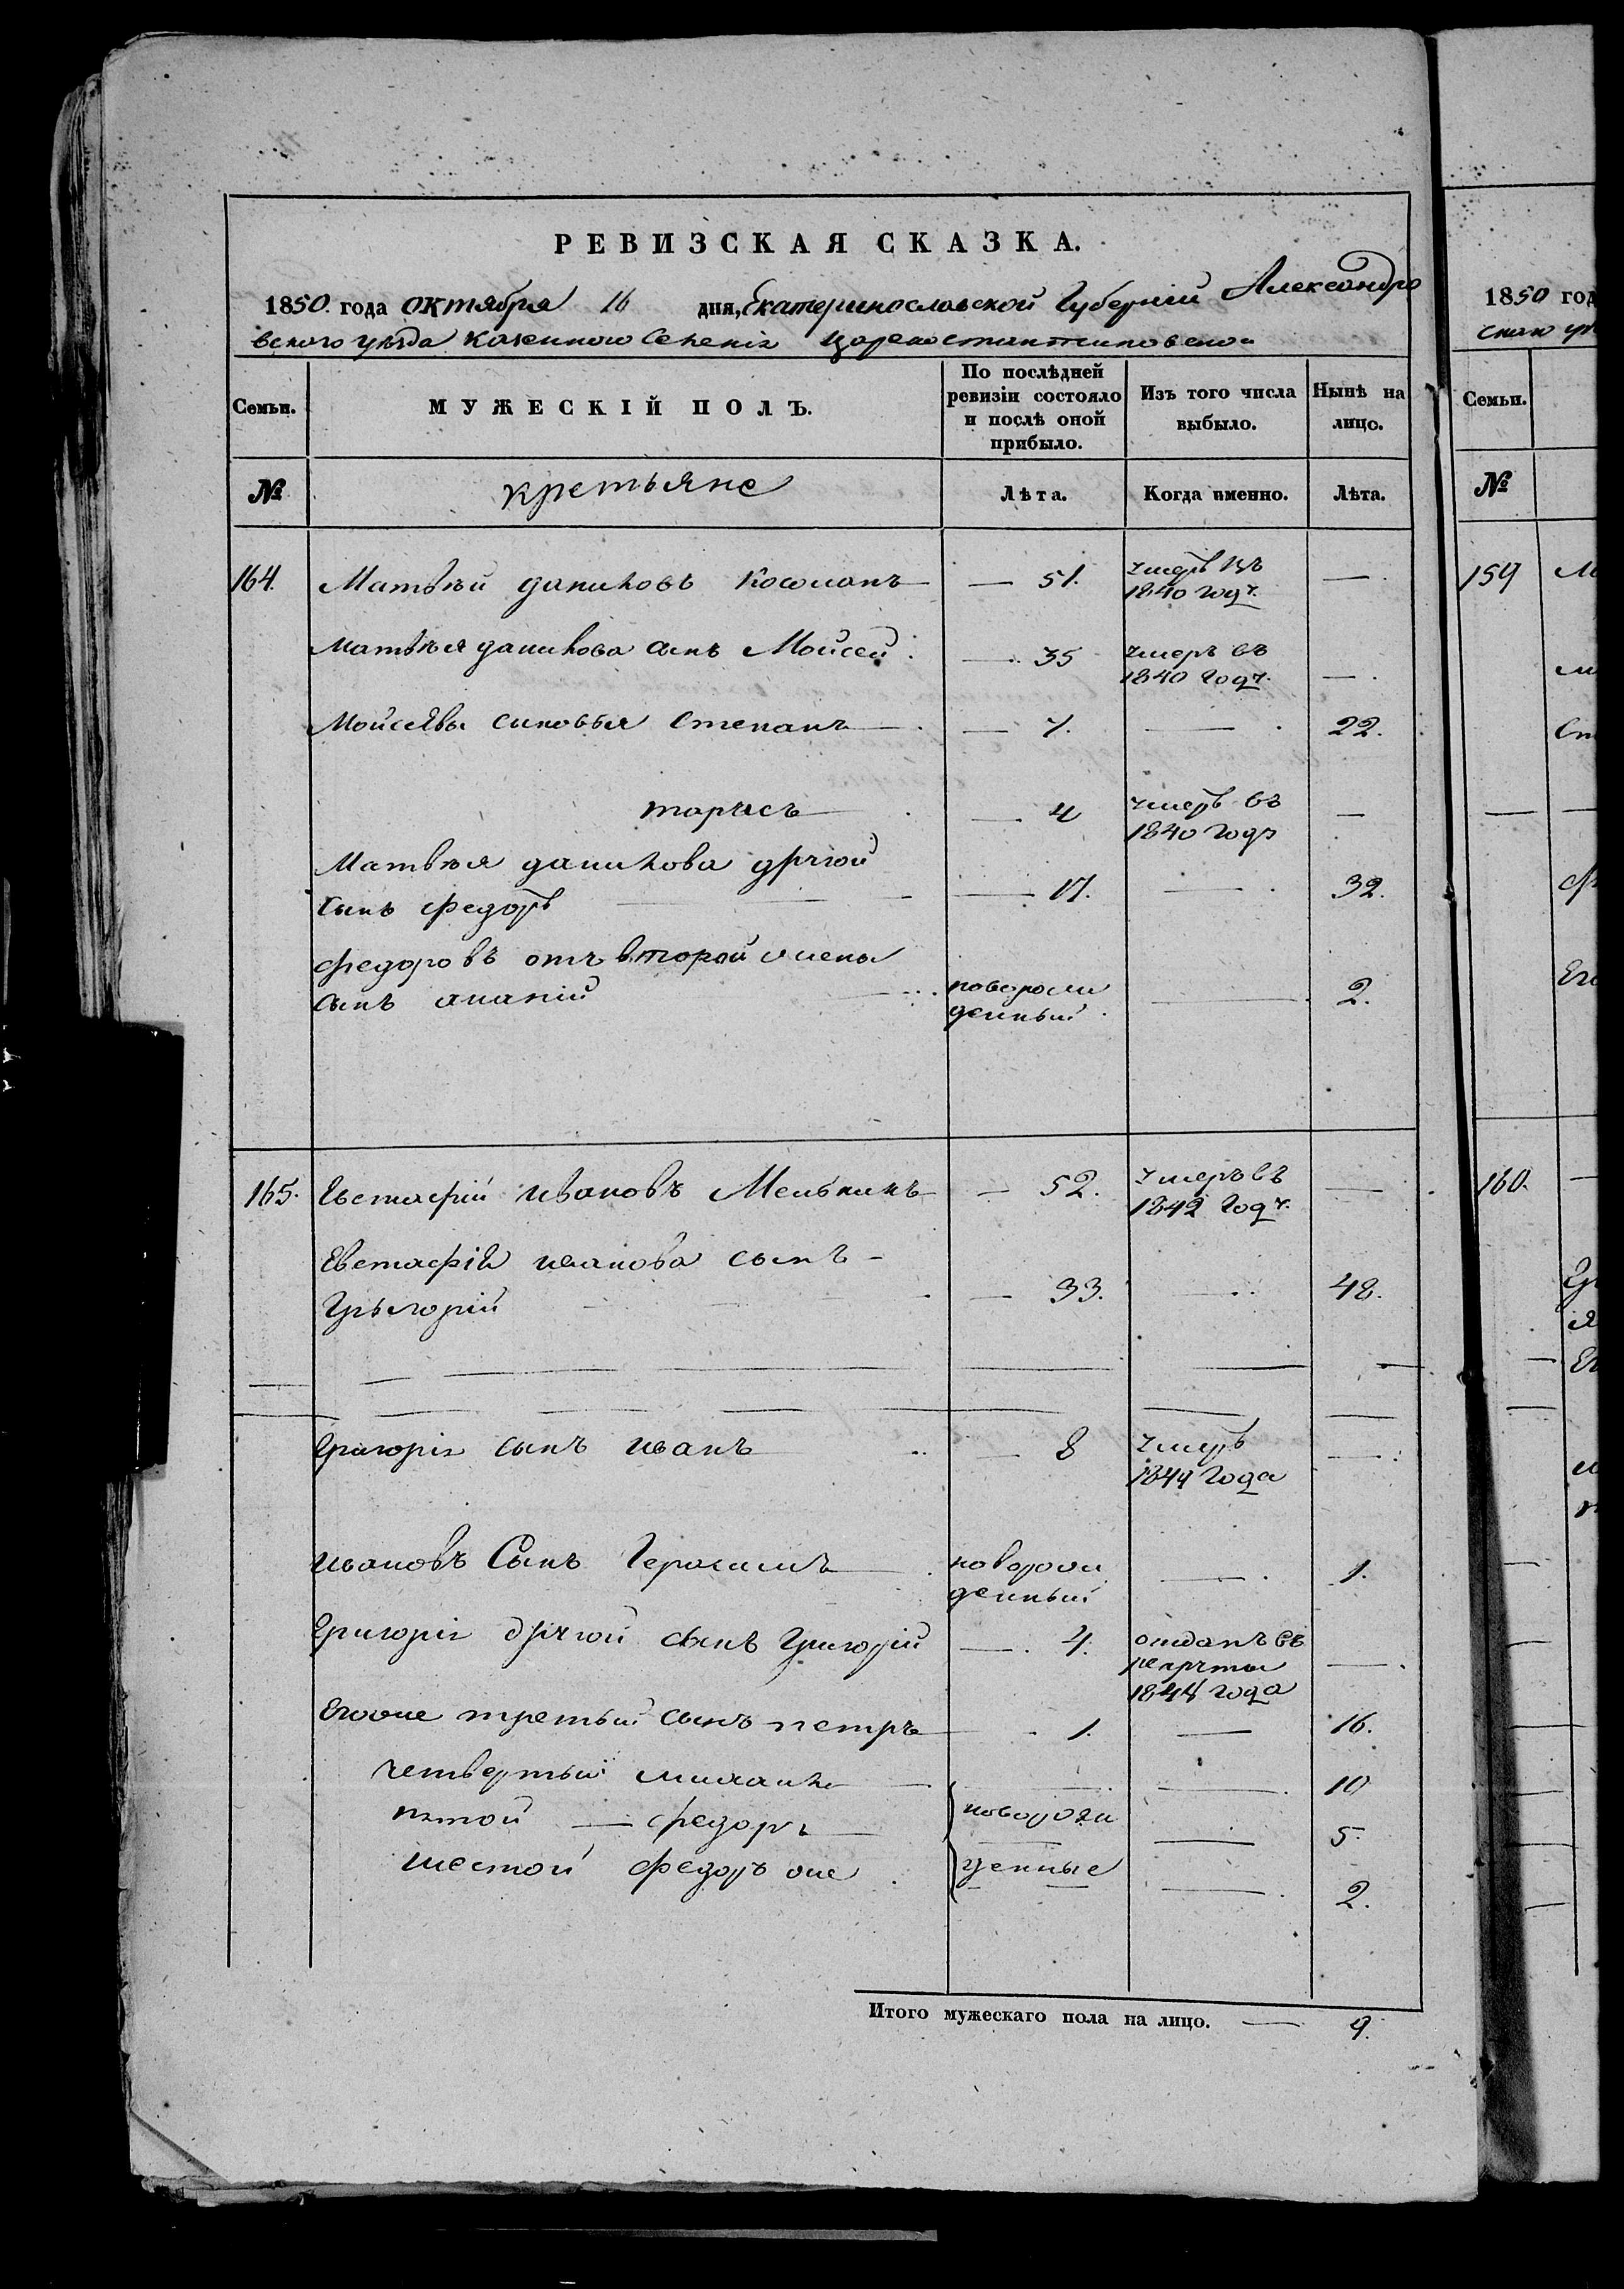 РЕВИЗСКАЯ СКАЗКА.
1850. года октября 16 дня, Екатеринославской Губерніи Александро
вского уезда Казенного Селенія Цареконстантиновкои
Семьи. МУЖЕСКІЙ ПОЛЪ. По послѣдней ревизіи состояло и послѣ оной прибыло. Изъ того числа выбыло. Нынѣ на лицо.
№ кретьяне Лѣта. Когда именно. Лѣта.
164. Матвѣй даниловъ — 51. умеръ въ —
1840 году.
Матвѣя данилова сынъ Мойсей — 35 умеръ въ
1840 году. —
Мойсѣвы сыновья Степанъ — 7. — 22.
тарасъ — 4 умеръ въ —
1840 году
Матвѣя данилова другой
сынъ федоръ — 17. — 32.
федоровъ отъ второй жены
сынъ ананій новорож
денный — 2.
165. Евстафій ивановъ Мельникъ — 52. умеръ въ —
1842 году.
Евстафій иванова сынъ
Грыгорій — 33. — 48.
Григорія сынъ иванъ — 8 умеръ —
1849 года
ивановъ Сынъ Герасимъ новорож — 1.
денный
Григорія другой сынъ Григорій — 4. отданъ въ
рекруты —
1848 года
Егоже третьий сынъ петръ 1. — 16.
четвертый михаилъ — 10
пятой — федоръ — новорож — 5.
шестой федоръ же денные — 2.
Итого мужескаго пола на лицо. — 9.
1850 год
Семьи.
№
159
160.